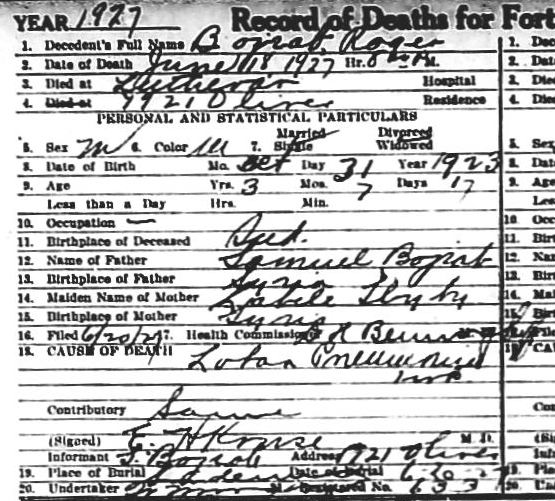 YEAR 1927 Record of Deaths for Fort
1. Decedent's Full Name Bojrab, Roger
2. Date of Death June 18 1927 Hr. M.
3. Died at Lutheran Hospital
4. Died at 1921 Oliver Residence
PERSONAL AND STATISTICAL PARTICULARS
5. Sex M 6. Color W 7. Married Single Divorced Widowed
8. Date of Birth Mo. Oct Day 31 Year 1923
9. Age Yrs. 3 Mos. 7 Days 17
Less than a Day Hrs. Min.
10. Occupation —
11. Birthplace of Deceased Ind.
12. Name of Father Samuel Bojrab
13. Birthplace of Father Syria
14. Maiden Name of Mother
15. Birthplace of Mother Syria
16. Filed 6/20/27 17. Health Commissioner
18. CAUSE OF DEATH Lobar Pneumonia
Contributory Same
(Signed) E. H. Kruse M. D.
Informant S. Bojrab Address 1921 Oliver
19. Place of Burial Date of Burial
20. Undertaker Registered No. 633
1. Dec
2. Dat
3. Die
4. Die
5. Sex
8. Dat
9. Age
Les
10. Occ
11. Birt
12. Nar
13. Birt
14. Mai
15. Birt
16. File
18. CAU
Con
(Sig
Info
19. Pla
20. Un